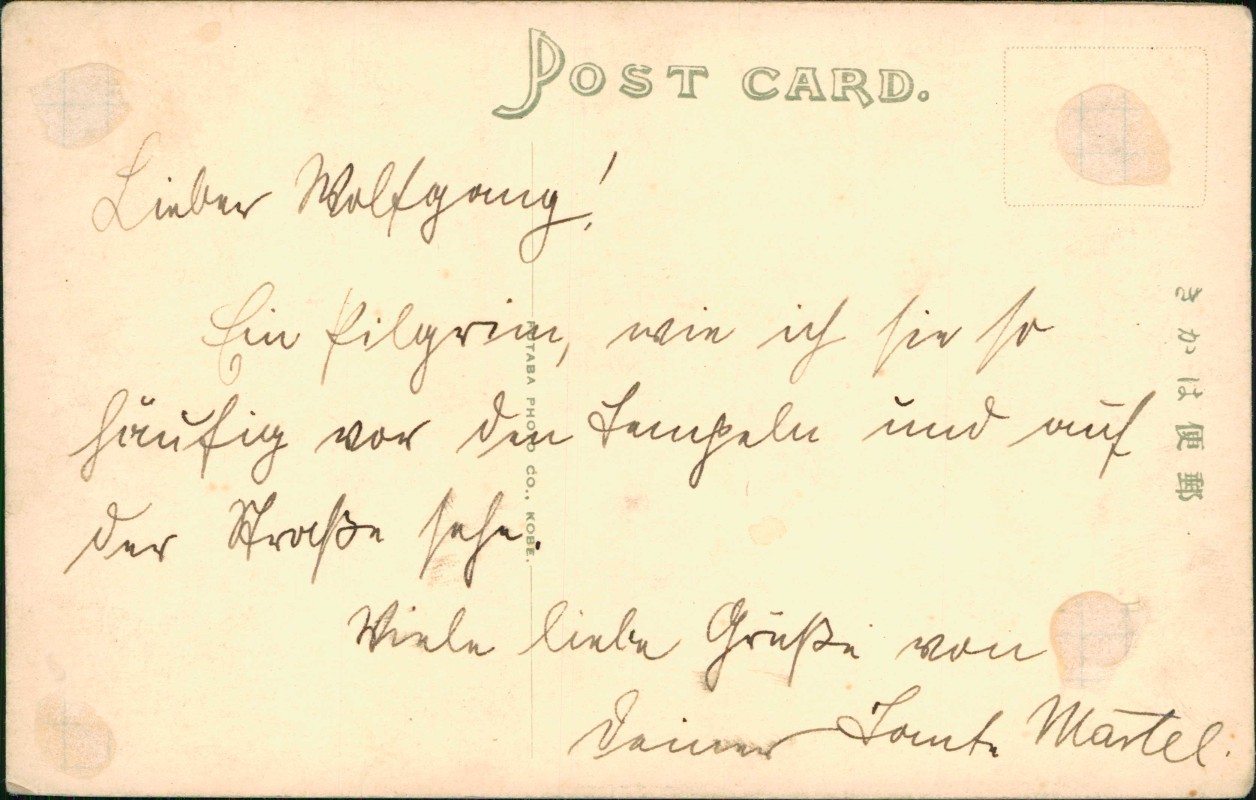 POST CARD.
Lieber Wolfgang!
Ein Pilgrim, wie ich sie so
häufig vor den Tempeln und auf
der Straße sehe.
Viele liebe Grüße von
Deiner Tante Martel.
FUTABA PHOTO CO., KOBE.
きかは便郵